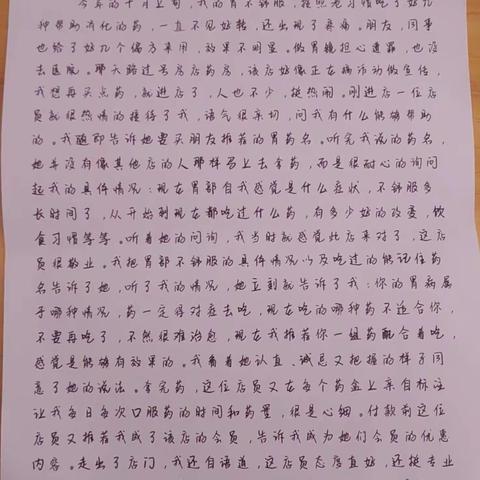 今年的十月上旬，我的胃不舒服，按照老习惯吃了好几
种帮助消化的药，一直不见好转，还出现了疼痛。朋友，同事
也给了好几个偏方来用，效果不明显。做胃镜担心遭罪，也没
去医院。那天路过号房店药房，该店好像正在搞活动做宣传，
我想再买点药，就进店了，人也不少，挺热闹。刚进店一位店
员就很热情的接待了我，语气很亲切，问我有什么能够帮助
的。我随即告诉她要买朋友推荐的胃药名。听完我说的药名，
她并没有像其他店的人那样马上去拿药，而是很耐心的询问
起我的具体情况：现在胃部自我感觉是什么症状，不舒服多
长时间了，从开始到现在都吃过什么药，有多少好的改变，饮
食习惯等等。听着她的问询，我当时就感觉此店来对了，这店
员很敬业。我把胃部不舒服的具体情况以及吃过的能记住药
名告诉了她，听了我的情况，她立刻就告诉了我：你的胃病属
于哪种情况，药一定得对症去吃，现在吃的哪种药不适合你，
不要再吃了，不然很难治愈，现在我推荐你一组药配合着吃，
感觉是能够有效果的。我看着她认真、诚恳又把握的样子同
意了她的说法。拿完药，这位店员又在每个药盒上亲自标注
让我每日每次口服药的时间和药量，很是心细。付款前这位
店员又推荐我成了该店的会员，告诉我成为她们会员的优惠
内容。走出了店门，我还自语道，这店员态度真好，还挺专业